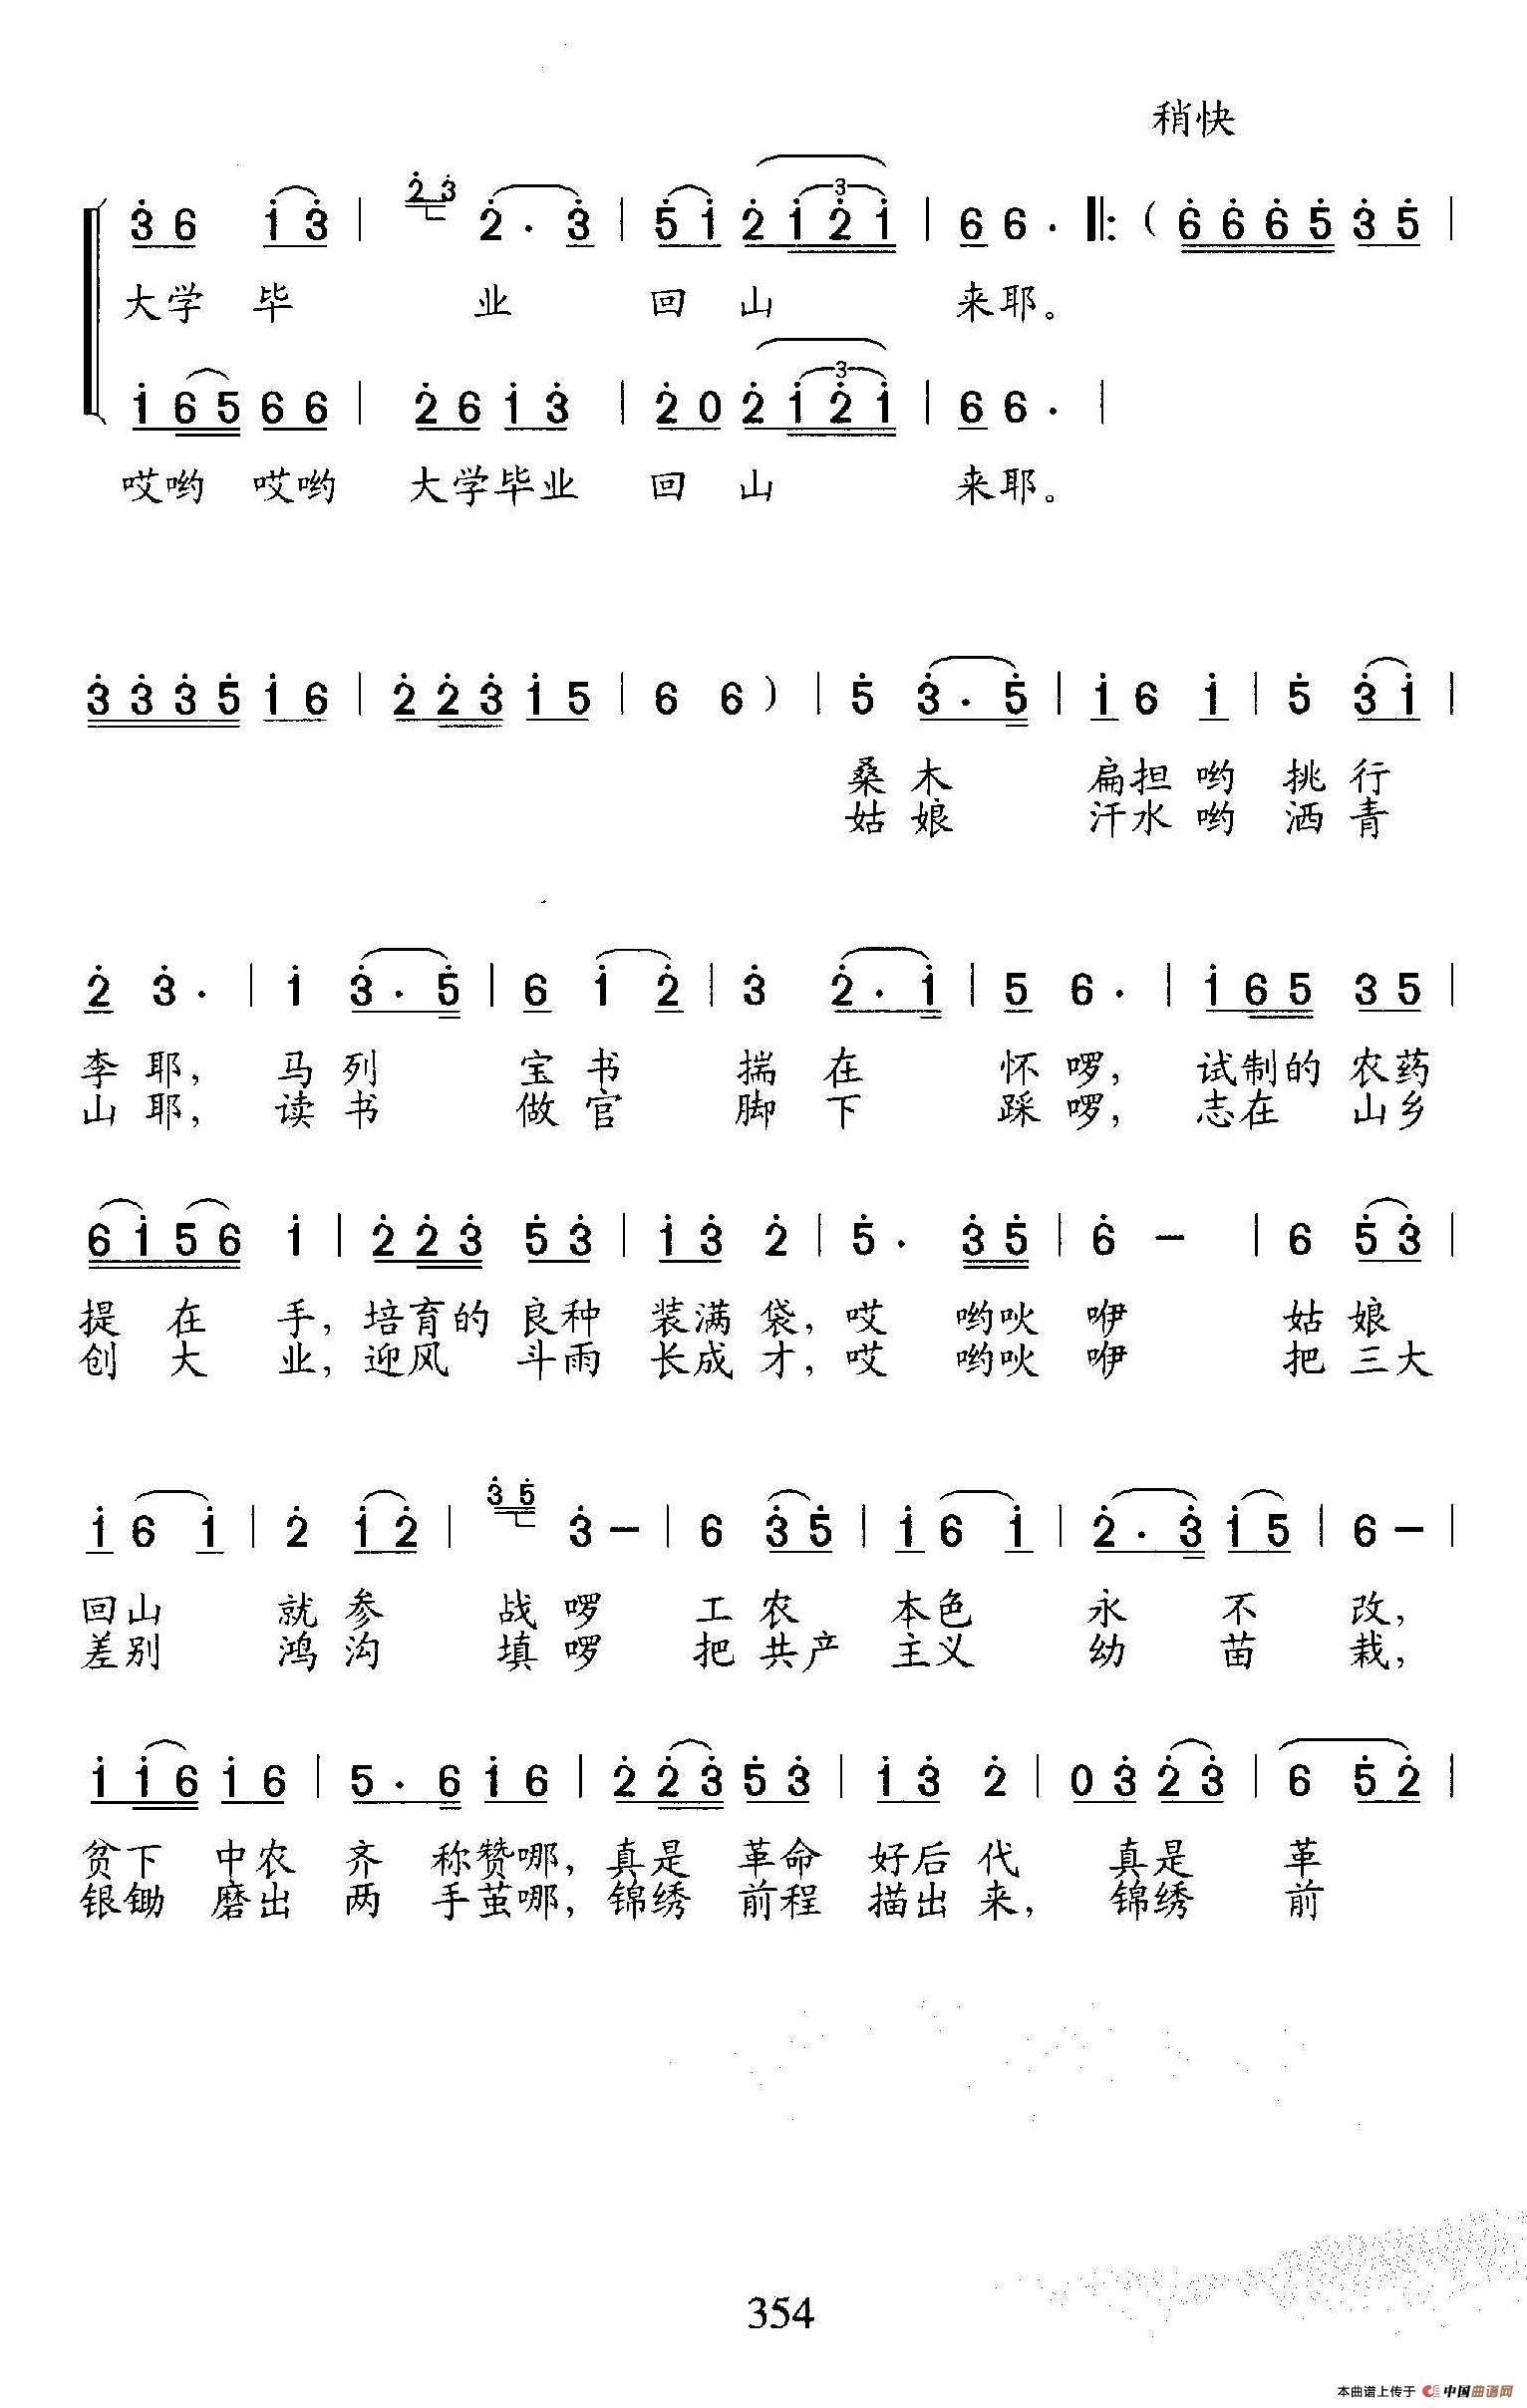 稍快
3 6 1 3 | 2 3 2 · 3 | 5 1 2 1 2 1 | 6 6 · ‖: ( 6 6 6 5 3 5 |
3
大学 毕 业 回 山 来耶。
1 6 5 6 6 | 2 6 1 3 | 2 0 2 1 2 1 | 6 6 · |
3
哎哟 哎哟 大学毕业 回 山 来耶。
3 3 3 5 1 6 | 2 2 3 1 5 | 6 6 ) | 5 3 · 5 | 1 6 1 | 5 3 1 |
桑 木 扁担 哟 挑 行
姑 娘 汗水 哟 洒 青
2 3 · | 1 3 · 5 | 6 1 2 | 3 2 · 1 | 5 6 · | 1 6 5 3 5 |
李 耶, 马 列 宝 书 揣 在 怀 啰, 试制的 农药
山 耶, 读 书 做 官 脚 下 踩 啰, 志在 山乡
6 1 5 6 1 | 2 2 3 5 3 | 1 3 2 | 5 · 3 5 | 6 – | 6 5 3 |
提 在 手, 培育的 良种 装满 袋, 哎 哟吙 咿 姑 娘
创 大 业, 迎风 斗雨 长成 才, 哎 哟吙 咿 把 三大
1 6 1 | 2 1 2 | 3 5 3 – | 6 3 5 | 1 6 1 | 2 · 3 1 5 | 6 – |
回山 就 参 战 啰 工 农 本色 永 不 改,
差别 鸿 沟 填 啰 把 共产 主义 幼 苗 栽,
1 1 6 1 6 | 5 · 6 1 6 | 2 2 3 5 3 | 1 3 2 | 0 3 2 3 | 6 5 2 |
贫下 中农 齐 称赞哪, 真是 革命 好后 代 真是 革
银锄 磨出 两 手茧哪, 锦绣 前程 描出 来, 锦绣 前
354
本曲谱上传于 中国曲谱网